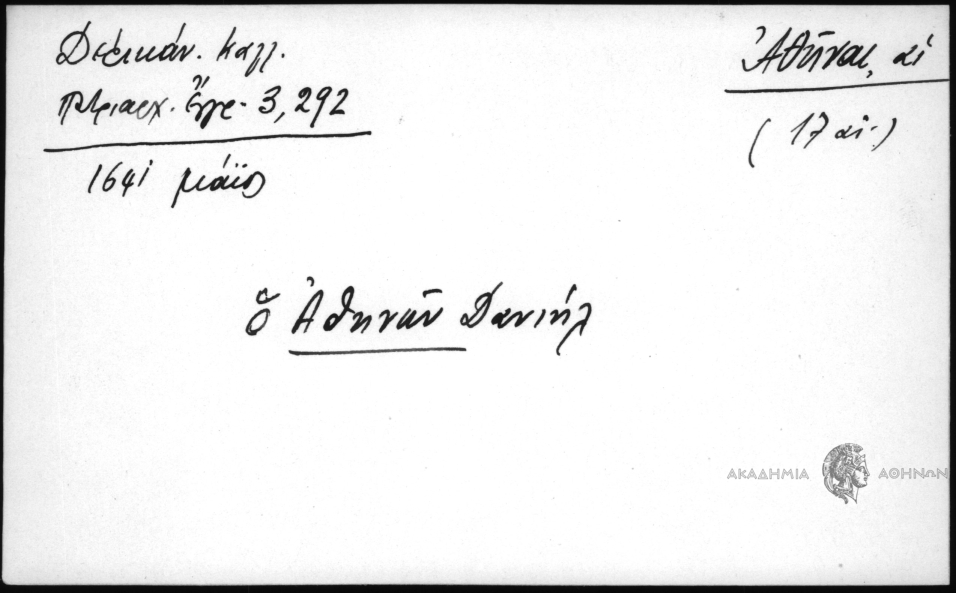 Δελικάν. Καλλ.
Πατριαρχ. Ἔγγρ. 3, 292
1641 μάϊος
Ἀθῆναι, αἱ
(17 αἰ.)
ὁ Ἀθηνῶν Δανιήλ
ΑΚΑΔΗΜΙΑ ΑΘΗΝΩΝ